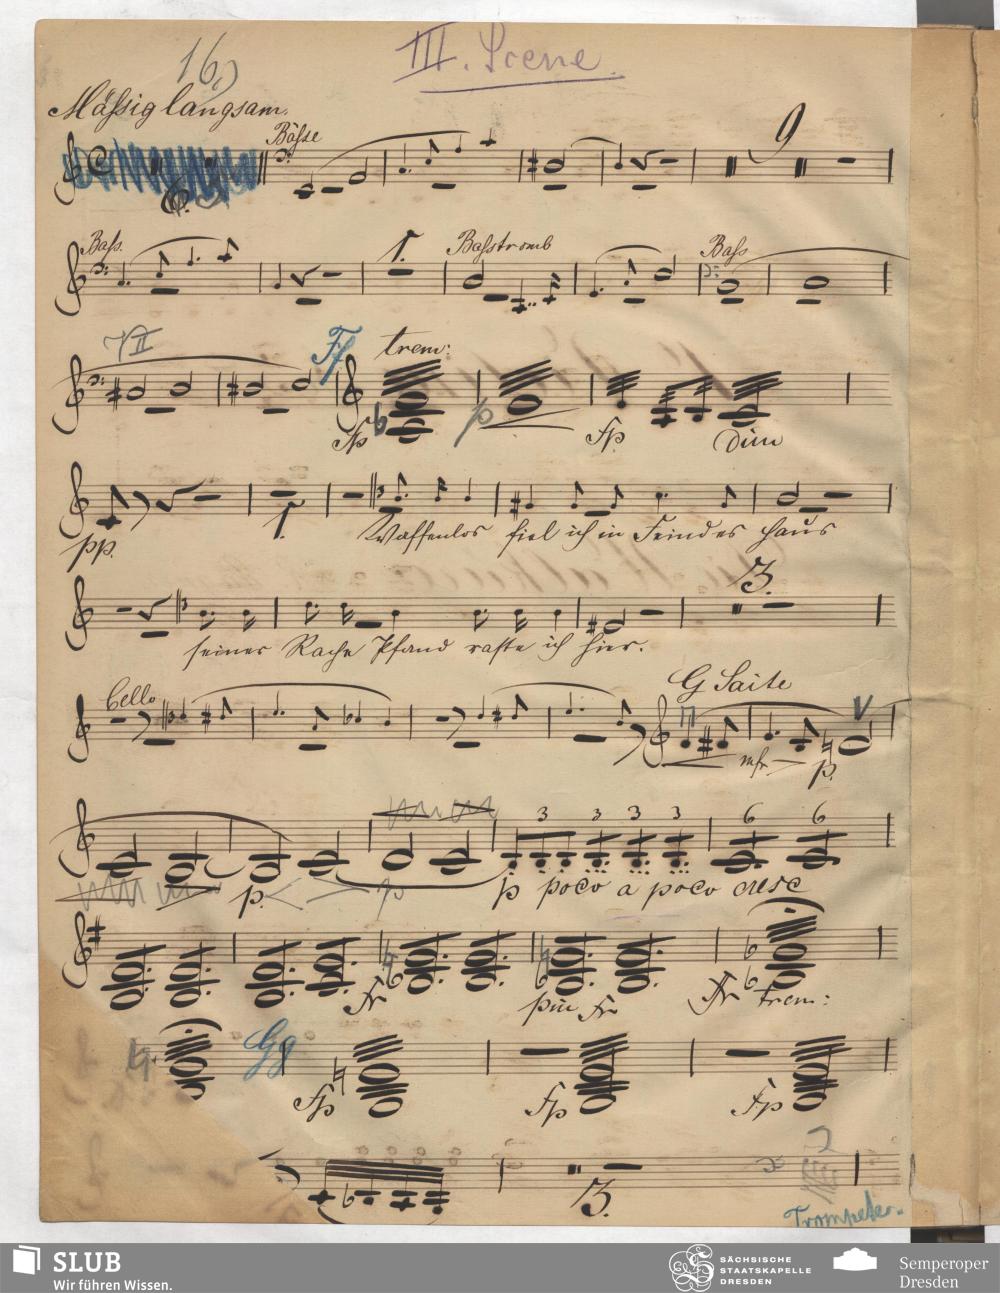 III. Scene
16.)
Mäßig langsam.
Bässe
9
Bass.
1.
Basstromb
Bass
VII
Ff
trem:
fp
p
fp
Dim
pp.
1.
Waffenlos fiel ich in Feindes Haus
3.
seiner Rache Pfand raste ich hier.
Cello
G Saite
mf
p.
3 3 3 3 6 6
p.
p
p poco a poco cresc
più
trem:
Gg
fp
fp
fp
3.
Trompeter.
SLUB
Wir führen Wissen.
SÄCHSISCHE
STAATSKAPELLE
DRESDEN
Semperoper
Dresden